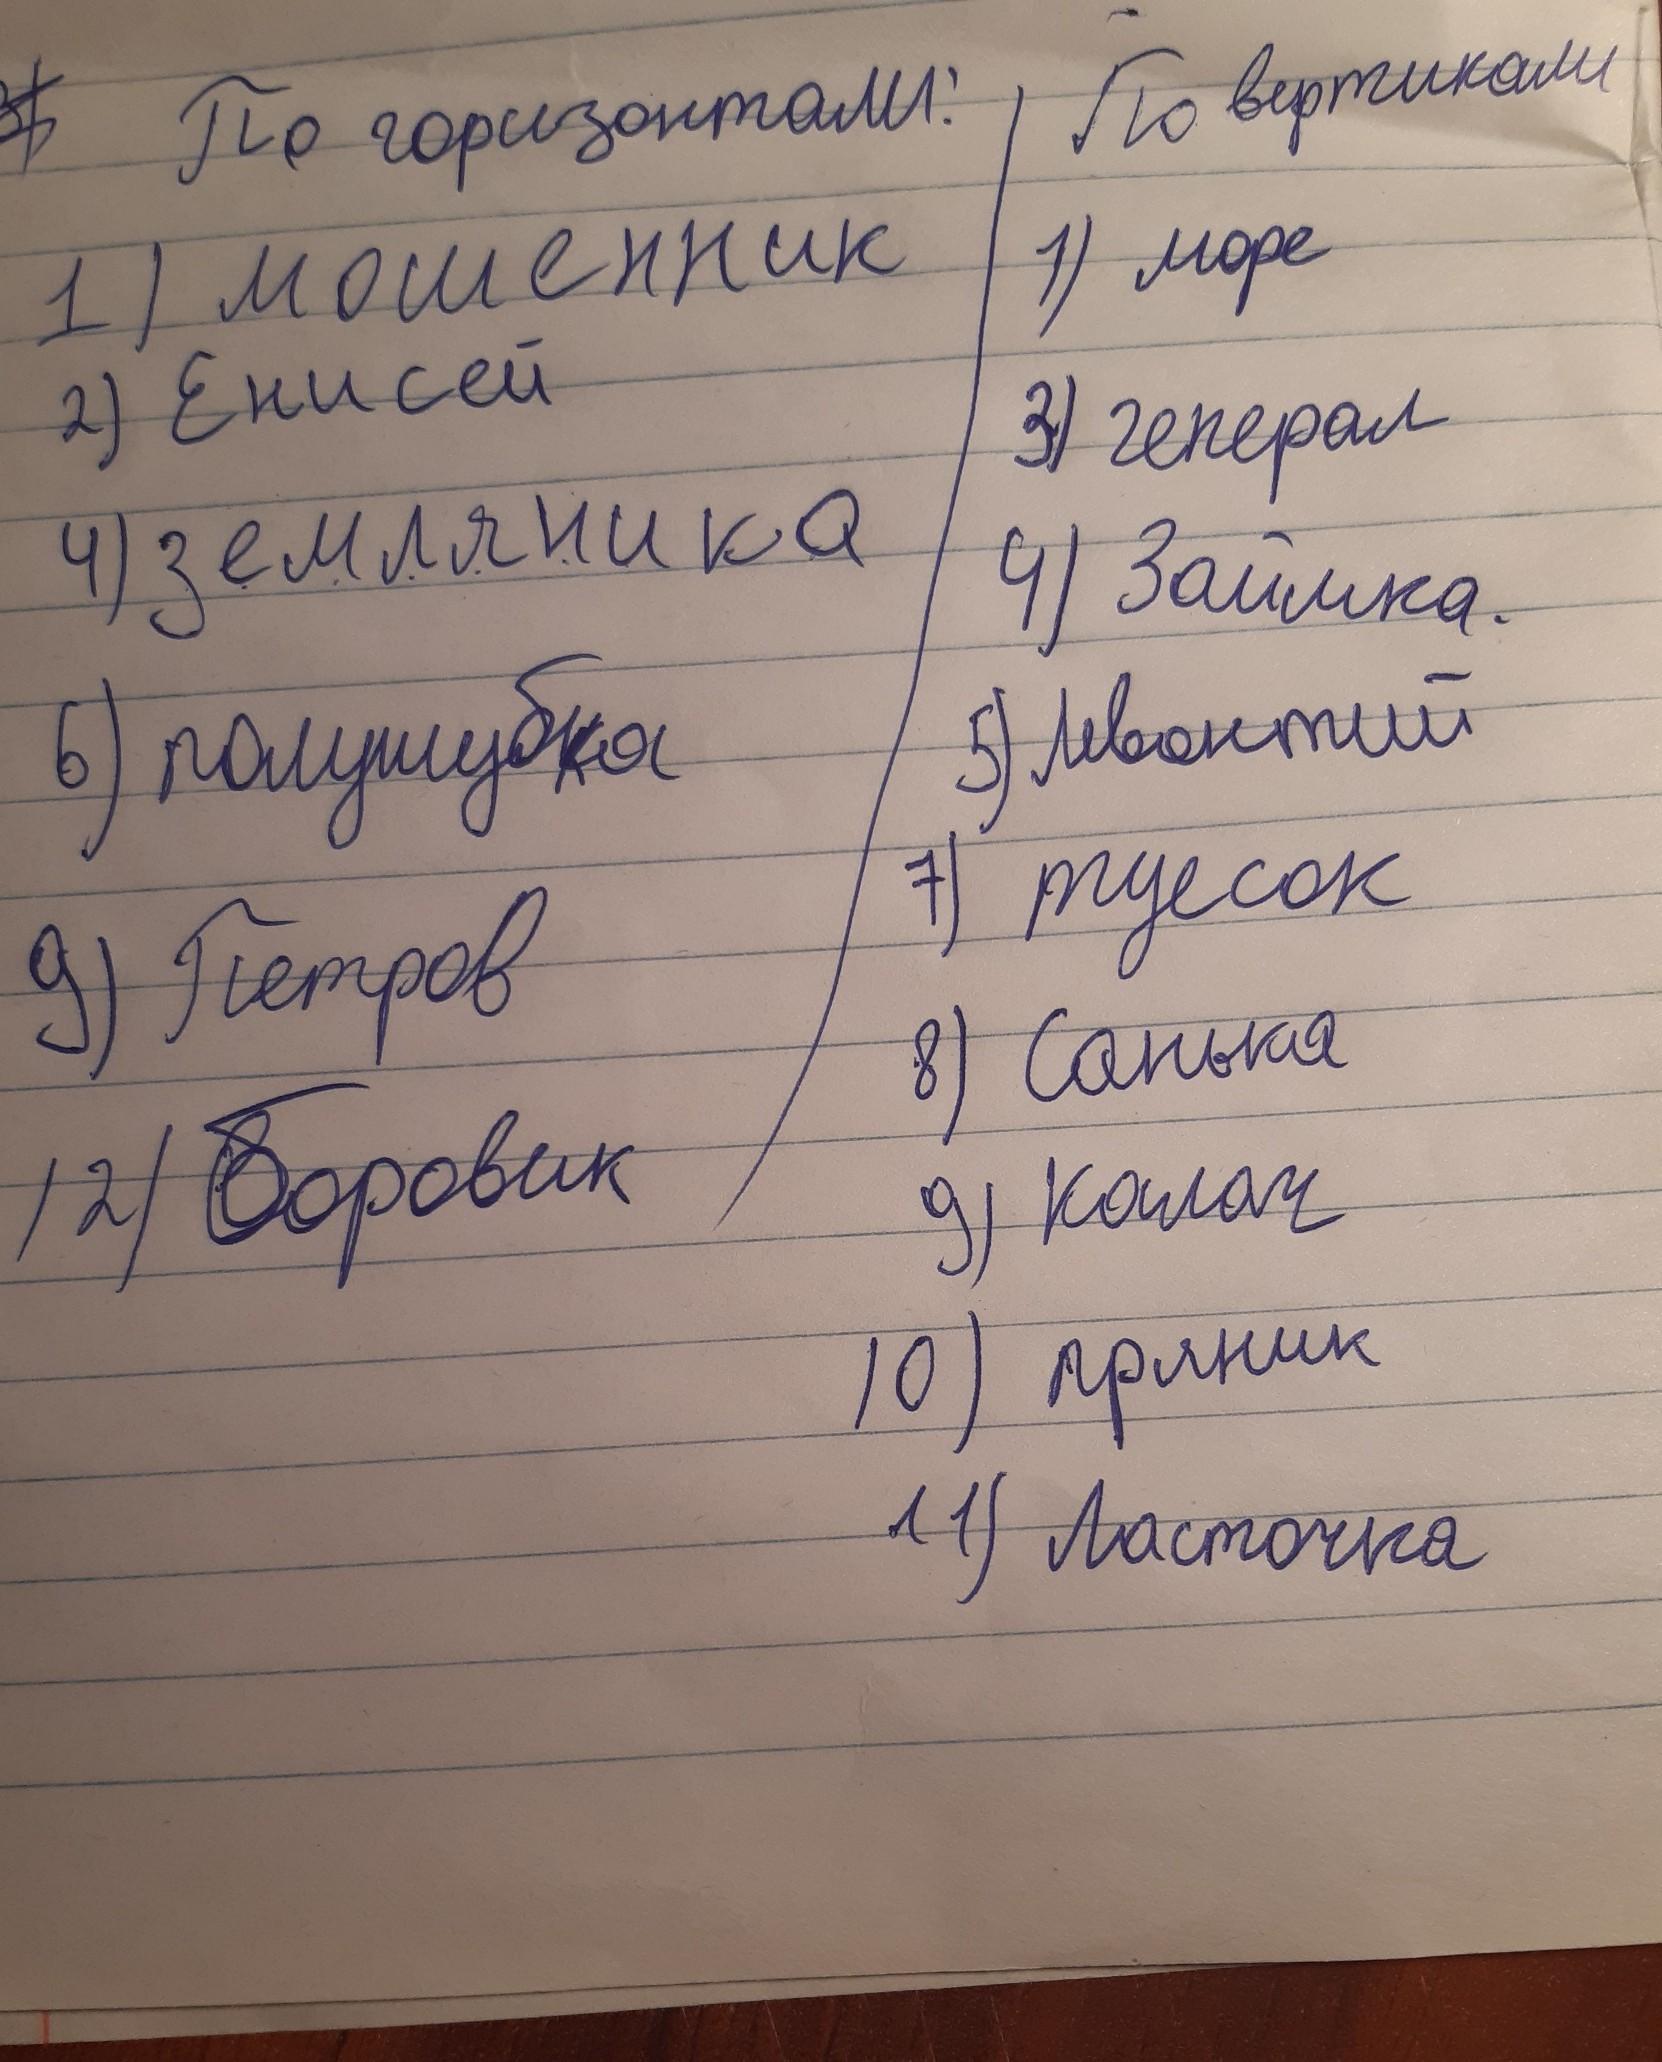 По горизонтали:
1) мошенник
2) Енисей
4) земляника
6) полушубка
9) Петров
12) Боровик
По вертикали
1) море
3) генерал
4) Займка.
5) Левонтий
7) туесок
8) Санька
9) Калач
10) пряник
11) Ласточка